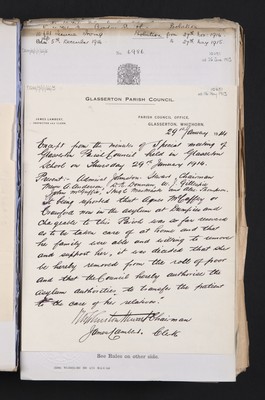 GLASSERTON PARISH COUNCIL.
JAMES LAMBERT,
INSPECTOR AND CLERK
PARISH COUNCIL OFFICE,
GLASSERTON, WHITHORN,
29th January 1914
Excerpt from the minutes of special meeting of
Glasserton Parish Council held in Glasserton
School on Thursday 29th January, 1914.
Present - Admiral Johnston Stewart, Chairman
Major A. Anderson,
It being reported that Agnes McCaffery or
Crawford now in the asylum at Dumfries and
chargeable to this Parish was so far recovered
as to be taken care of at home and that
her family were able and willing to remove
and support her, it was decided that she
be hereby removed from the roll of poor
and that the Council hereby authorises the
Asylum authorities to transfer the patient
to the care of her relatives.
Chairman
James Lambert. Clerk
See Rules on other side.